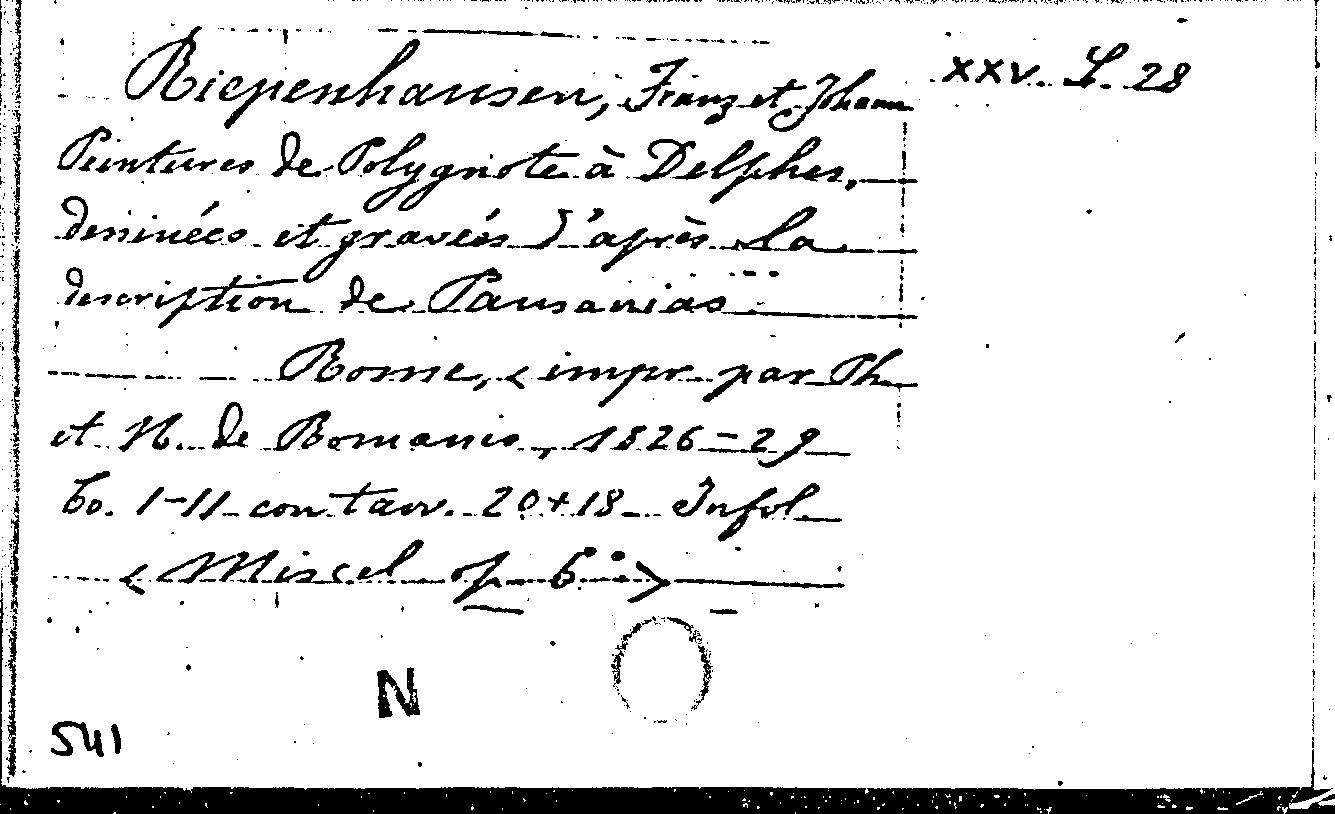 Riepenhausen, Franz et Johann XXV. L. 28
Peintures de Polygnote à Delphes,
dessinées et gravées d'après la
description de Pausanias
Rome, < impr. par Ph.
et N. de Romanis, 1826-29
to. 1-11 con tavv. 20+18 Infol.
< Miscel op 6° >
N
541